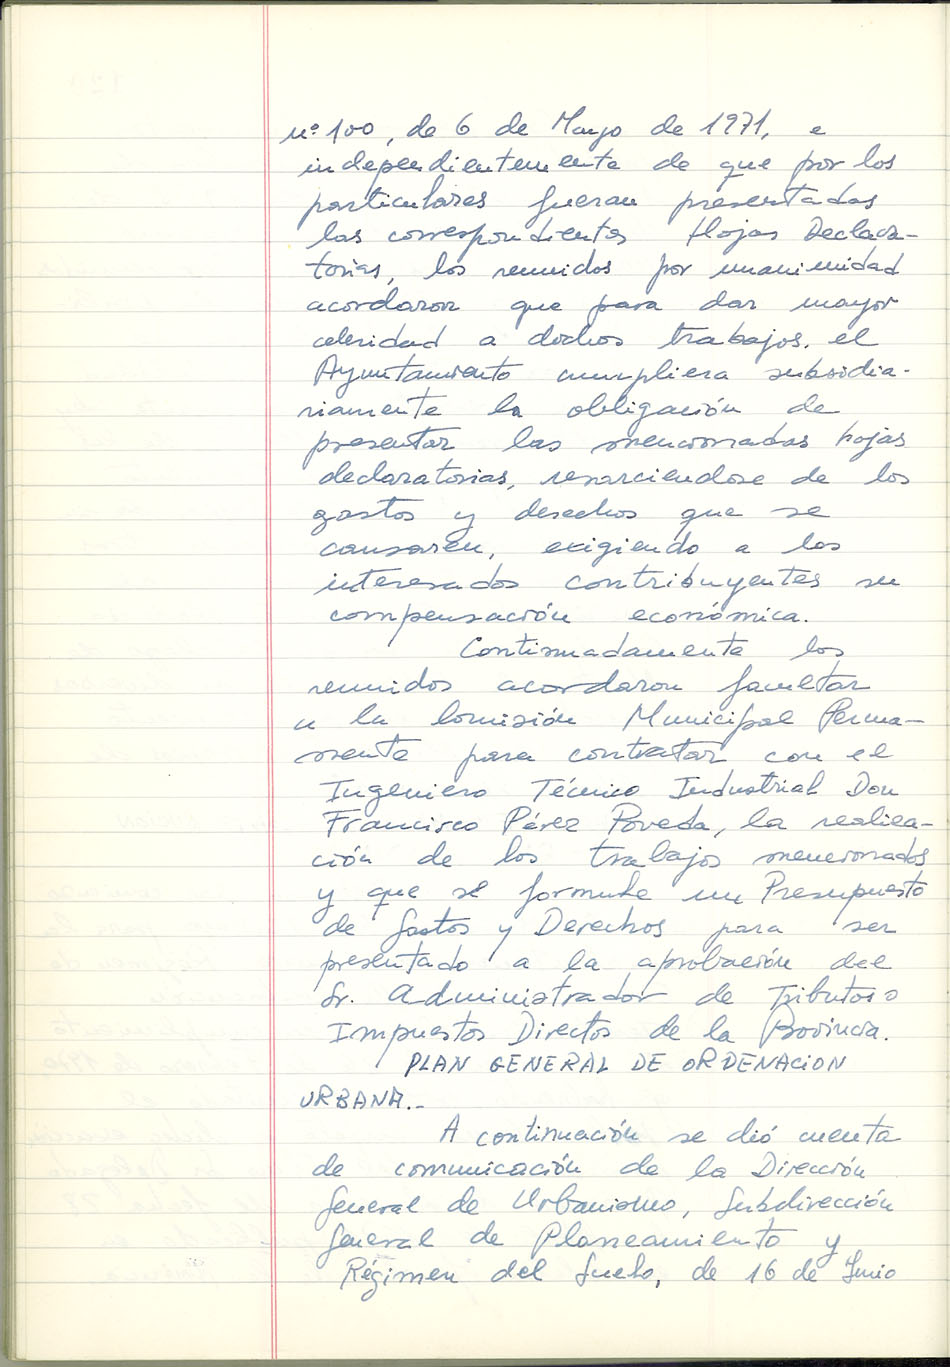 nº 100, de 6 de Mayo de 1971, e
independientemente de que por los
particulares fueran presentadas
las correspondientes Hojas Declara-
torias, los reunidos por unanimidad
acordaron que para dar mayor
celeridad a dichos trabajos, el
Ayuntamiento cumpliera subsidia-
riamente la obligación de
presentar las mencionadas hojas
declaratorias, resarciendose de los
gastos y desechos que se
causaren, exigiendo a los
interesados contribuyentes su
compensación económica.
Continuadamente los
reunidos acordaron facultar
a la Comisión Municipal Perma-
nente para contratar con el
Ingeniero Técnico Industrial Don
Francisco Pérez Poveda, la realiza-
ción de los trabajos mencionados
y que se formule un Presupuesto
de Gastos y Derechos para ser
presentado a la aprobación del
Sr. Administrador de Tributos e
Impuestos Directos de la Provincia.
PLAN GENERAL DE ORDENACION
URBANA.-
A continuación se dió cuenta
de comunicación de la Dirección
General de Urbanismo, Subdirección
General de Planeamiento y
Régimen del Suelo, de 16 de Junio